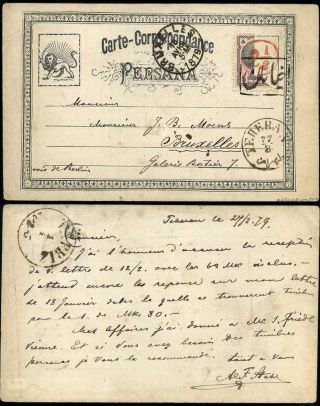 Carte-Correspondance
PERSANE
BRUXELLES
TEHERAN
Monsieur
Monsieur J B Moens
Bruxelles
Galerie Bortier 7.
voie de Berlin
Teheran le 27/2.79.
Monsieur,
J'ai l'honneur d'accuser la reception
de v. lettre de 12/2. avec les 60 Mk inclus,
j'attend encore les reponse sur mon lettre
de 18 Janvier dans la quelle se trouvernt timbres
pour la s. de Mk 80.-
Mes affaires j'ai donné a Mr. J. Friedl
Vienne. Et si vous avez besoin des timbres
persanes je vous la recommande.
tout a vous